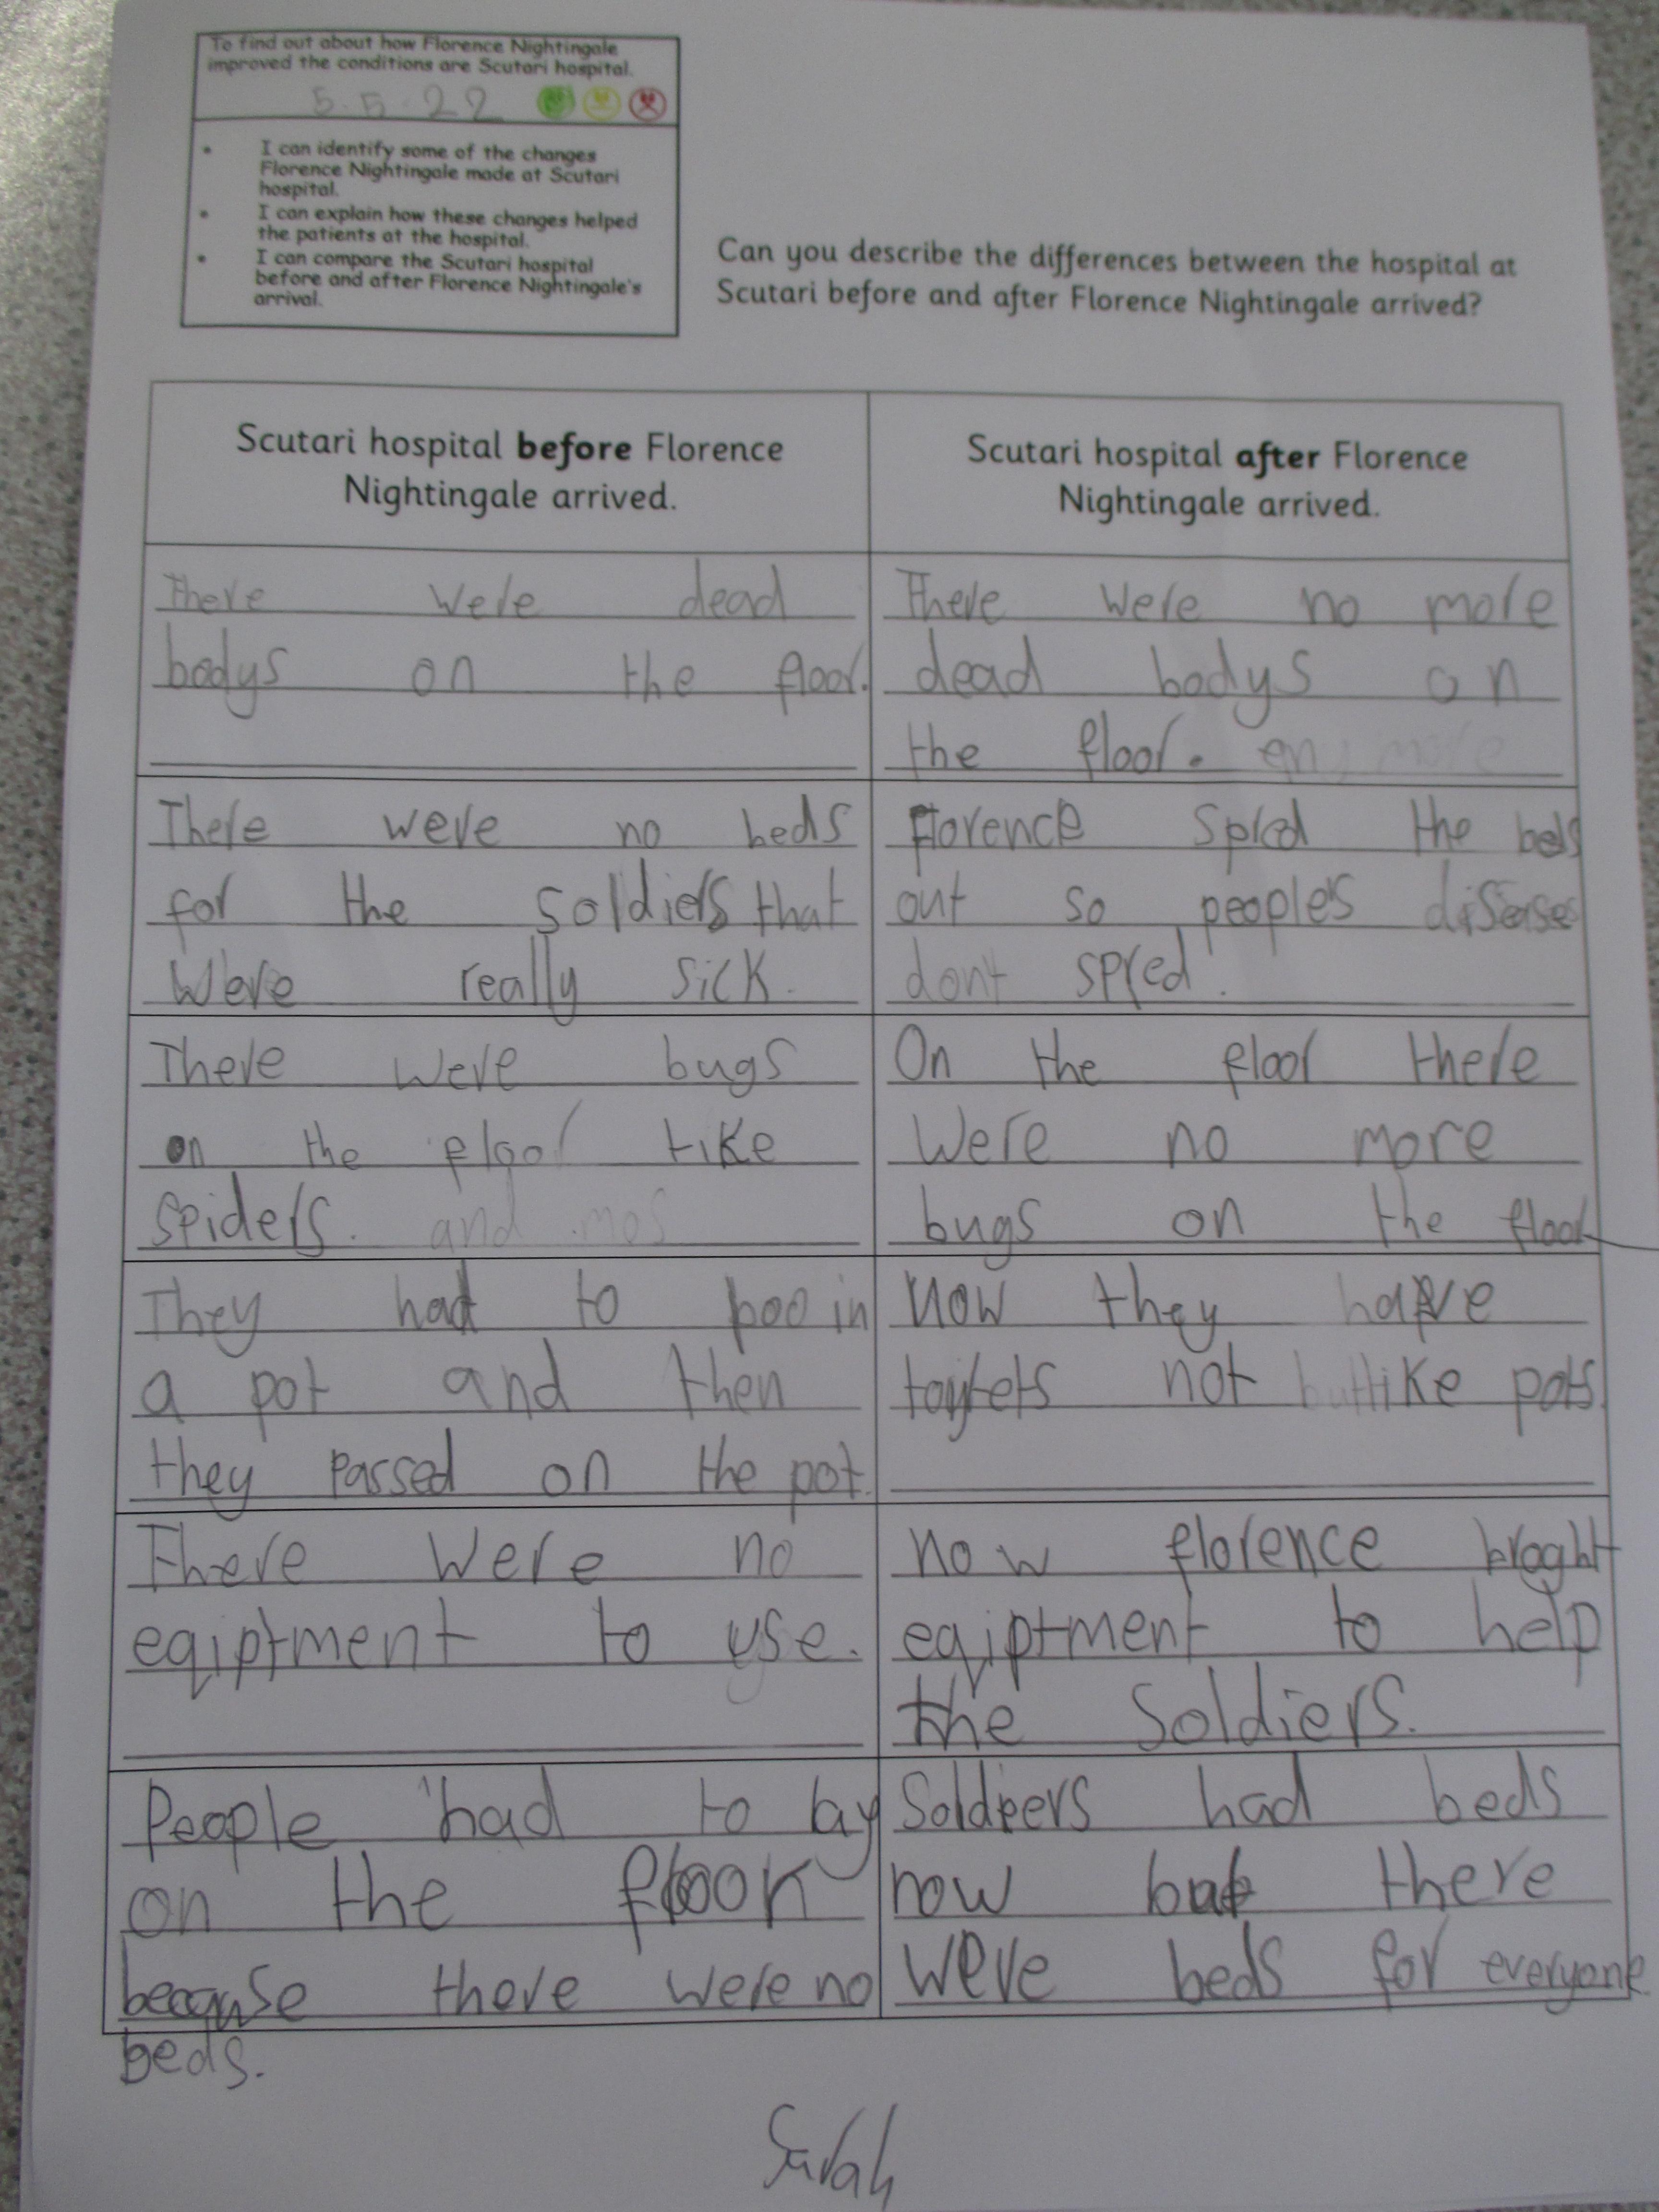 To find out about how Florence Nightingale
improved the conditions are Scutari hospital.
5.5.22
I can identify some of the changes
Florence Nightingale made at Scutari
hospital.
I can explain how these changes helped
the patients at the hospital.
I can compare the Scutari hospital
before and after Florence Nightingale's
arrival.
Can you describe the differences between the hospital at
Scutari before and after Florence Nightingale arrived?
Scutari hospital before Florence
Nightingale arrived.
Scutari hospital after Florence
Nightingale arrived.
There were dead
bodys on the floor.
There were no more
dead bodys on
the floor.
There were no beds
for the soldiers that
Were really sick.
Florence Spred the beds
out so people's diseases
dont spred.
There were bugs
on the floor like
spiders.
On the floor there
Were no more
bugs on the floor
They had to poo in
a pot and then
they passed on the pot.
Now they have
toylets not like pots.
There were no
eqiptment to use.
now florence broght
eqiptment to help
the Soldiers.
People had to lay
on the floor
because there were no
beds.
Soldiers had beds
now but there
were beds for everyone
Sarah